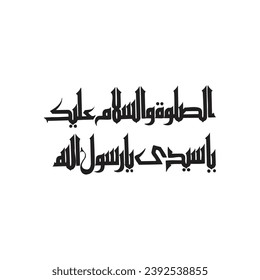 الصلوة والسلام عليك
يا سيدى يا رسول الله
shutterstock.com · 2392538855